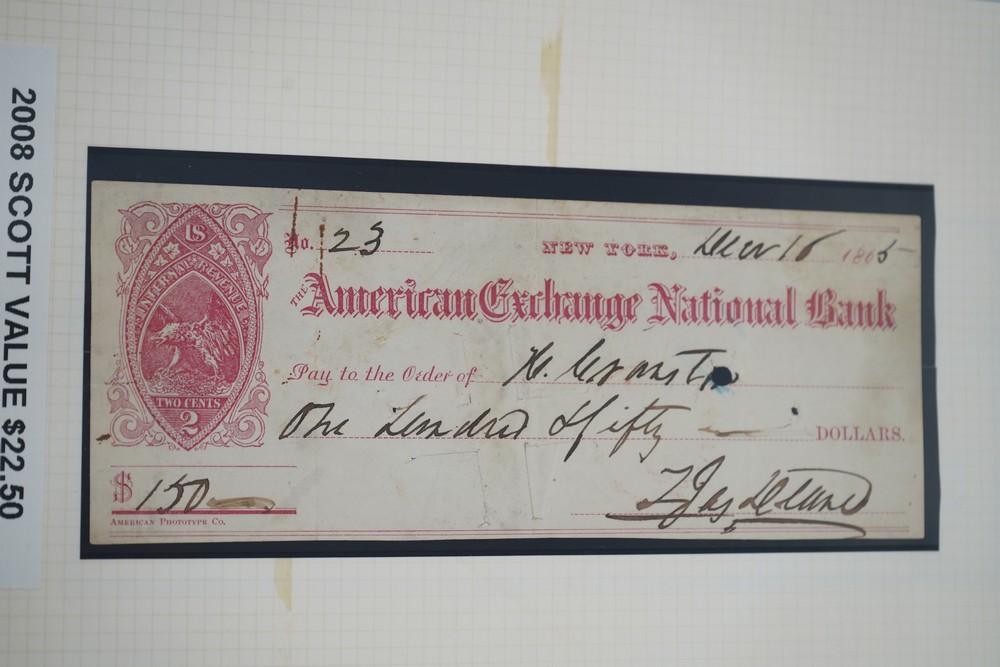 2008 SCOTT VALUE $22.50
U.S.
INTERNAL REVENUE
TWO CENTS
2
No. 23
NEW YORK, 16 1865
THE American Exchange National Bank
Pay to the Order of H.
One Hundred & fifty DOLLARS.
$ 150
AMERICAN PHOTOTYPE Co.